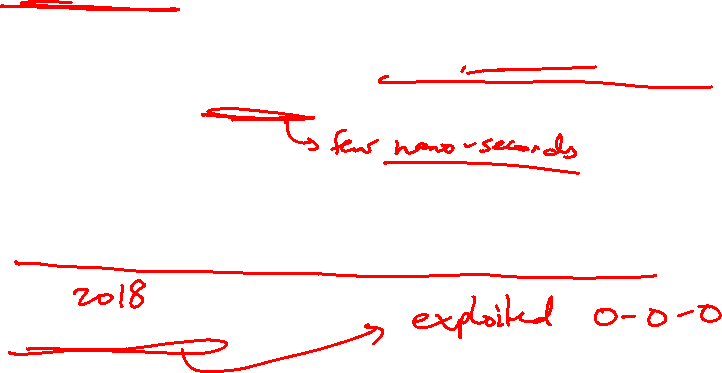 few nano-seconds
2018
exploited O-O-O